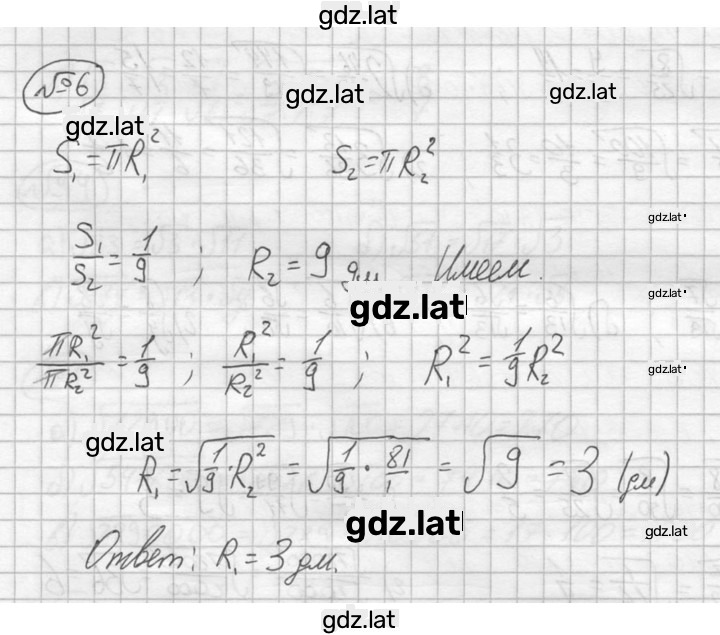 gdz.lat
№6
gdz.lat gdz.lat
gdz.lat
S₁ = πR₁² S₂ = πR₂²
gdz.lat
S₁/S₂ = 1/9 ; R₂ = 9 дм Имеем.
gdz.lat
gdz.lat
πR₁²/πR₂² = 1/9 ; R₁²/R₂² = 1/9 ; R₁² = 1/9 R₂²
gdz.lat
gdz.lat
R₁ = √(1/9 · R₂²) = √(1/9 · 81/1) = √9 = 3 (дм)
gdz.lat
gdz.lat
Ответ: R₁ = 3 дм.
gdz.lat